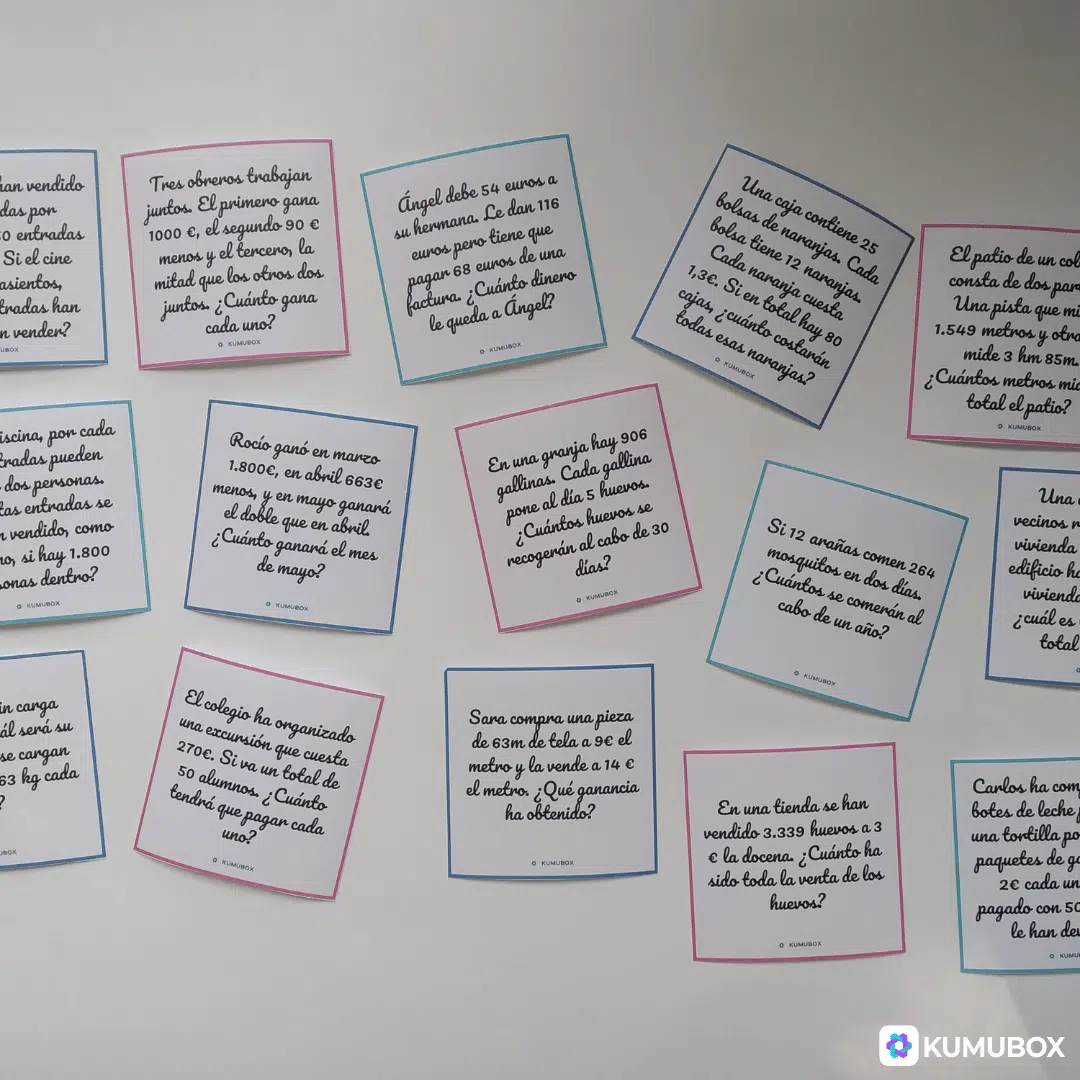 han vendido
das por
entradas
Si el cine
asientos,
tradas han
n vender?
Tres obreros trabajan
juntos. El primero gana
1000 €, el segundo 90 €
menos y el tercero, la
mitad que los otros dos
juntos. ¿Cuánto gana
cada uno?
KUMUBOX
Ángel debe 54 euros a
su hermana. Le dan 116
euros pero tiene que
pagar 68 euros de una
factura. ¿Cuánto dinero
le queda a Ángel?
KUMUBOX
Una caja contiene 25
bolsas de naranjas. Cada
bolsa tiene 12 naranjas.
Cada naranja cuesta
1,3€. Si en total hay 80
cajas, ¿cuánto costarán
todas esas naranjas?
KUMUBOX
El patio de un col
consta de dos par
Una pista que mi
1.549 metros y otra
mide 3 hm 85m.
¿Cuántos metros mid
total el patio?
KUMUBOX
iscina, por cada
tradas pueden
dos personas.
tas entradas se
n vendido, como
no, si hay 1.800
sonas dentro?
KUMUBOX
Rocío ganó en marzo
1.800€, en abril 663€
menos, y en mayo ganará
el doble que en abril.
¿Cuánto ganará el mes
de mayo?
KUMUBOX
En una granja hay 906
gallinas. Cada gallina
pone al día 5 huevos.
¿Cuántos huevos se
recogerán al cabo de 30
días?
KUMUBOX
Si 12 arañas comen 264
mosquitos en dos días.
¿Cuántos se comerán al
cabo de un año?
KUMUBOX
Una
vecinos
vivienda
edificio ha
vivienda
¿cuál es
total
in carga
ál será su
se cargan
63 kg cada
?
El colegio ha organizado
una excursión que cuesta
270€. Si va un total de
50 alumnos. ¿Cuánto
tendrá que pagar cada
uno?
KUMUBOX
Sara compra una pieza
de 63m de tela a 9€ el
metro y la vende a 14 €
el metro. ¿Qué ganancia
ha obtenido?
KUMUBOX
En una tienda se han
vendido 3.339 huevos a 3
€ la docena. ¿Cuánto ha
sido toda la venta de los
huevos?
KUMUBOX
Carlos ha com
botes de leche
una tortilla po
paquetes de ga
2€ cada un
pagado con 50
le han dev
KUMU
KUMUBOX